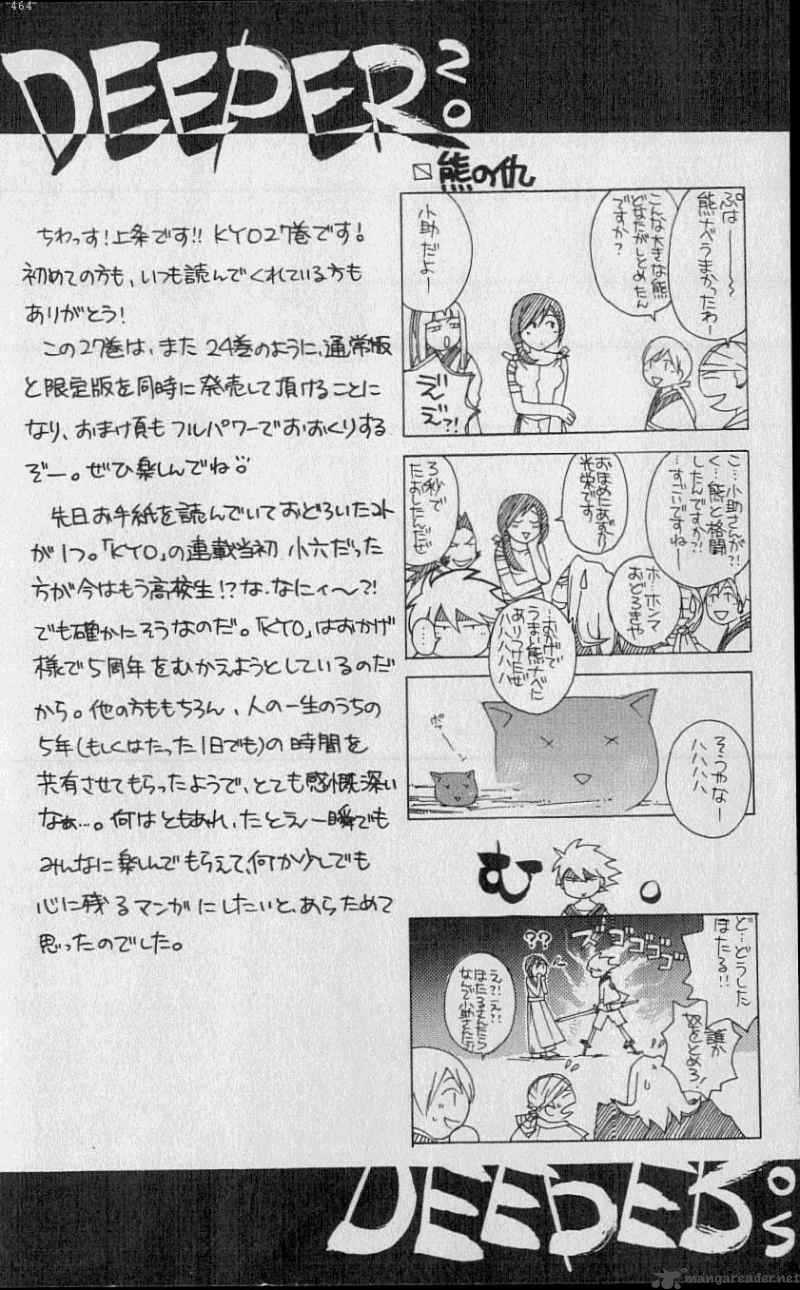 464
DEEPER
20
熊の仇
ちわっす!上条です!! KYO27巻です!
初めての方も、いつも読んでくれている方も
ありがとう!
この27巻は、また24巻のように、通常版
と限定版を同時に発売して頂けることに
なり、おまけ頁もフルパワーでおおくりする
ぞー。ぜひ楽しんでね
先日お手紙を読んでいておどろいたコト
が1つ。「KYO」の連載当初 小六だった
方が今はもう高校生!?な、なにィ〜?!
でも確かにそうなのだ。「KYO」はおかげ
様で5周年をむかえようとしているのだ
から。他の方ももちろん、人の一生のうちの
5年(もしくはたった1日でも)の時間を
共有させてもらったようで、とても感慨深い
なぁ…。何はともあれ、たとえ一瞬でも
みんなに楽しんでもらえて、何か少しでも
心に残るマンガにしたいと、あらためて
思ったのでした。
ぷはーー〜
熊ナベうまかったわー
こんな大きな熊
どなたがしとめたん
ですか?
小助だよー
ええ?!
こ…小助さんが?!
く…熊と格闘
したんですか?!
…すごいですねー
ホ…ホンマ
おどろきや
おほめにあずかり
光栄です
3秒で
たおしたんだぜ
…
…おかげで
うまい熊ナベに
ありつけたぜ
ハハハハ
そうやなー
ハハハハ
む。
ど…どうした
ほたる!!
誰か
奴をとめろ!
ズゴゴゴゴゴ
??
え?!え?!
ほたるさんだろ
なんで小助さんに?!
DEEPER
20
mangareader.net